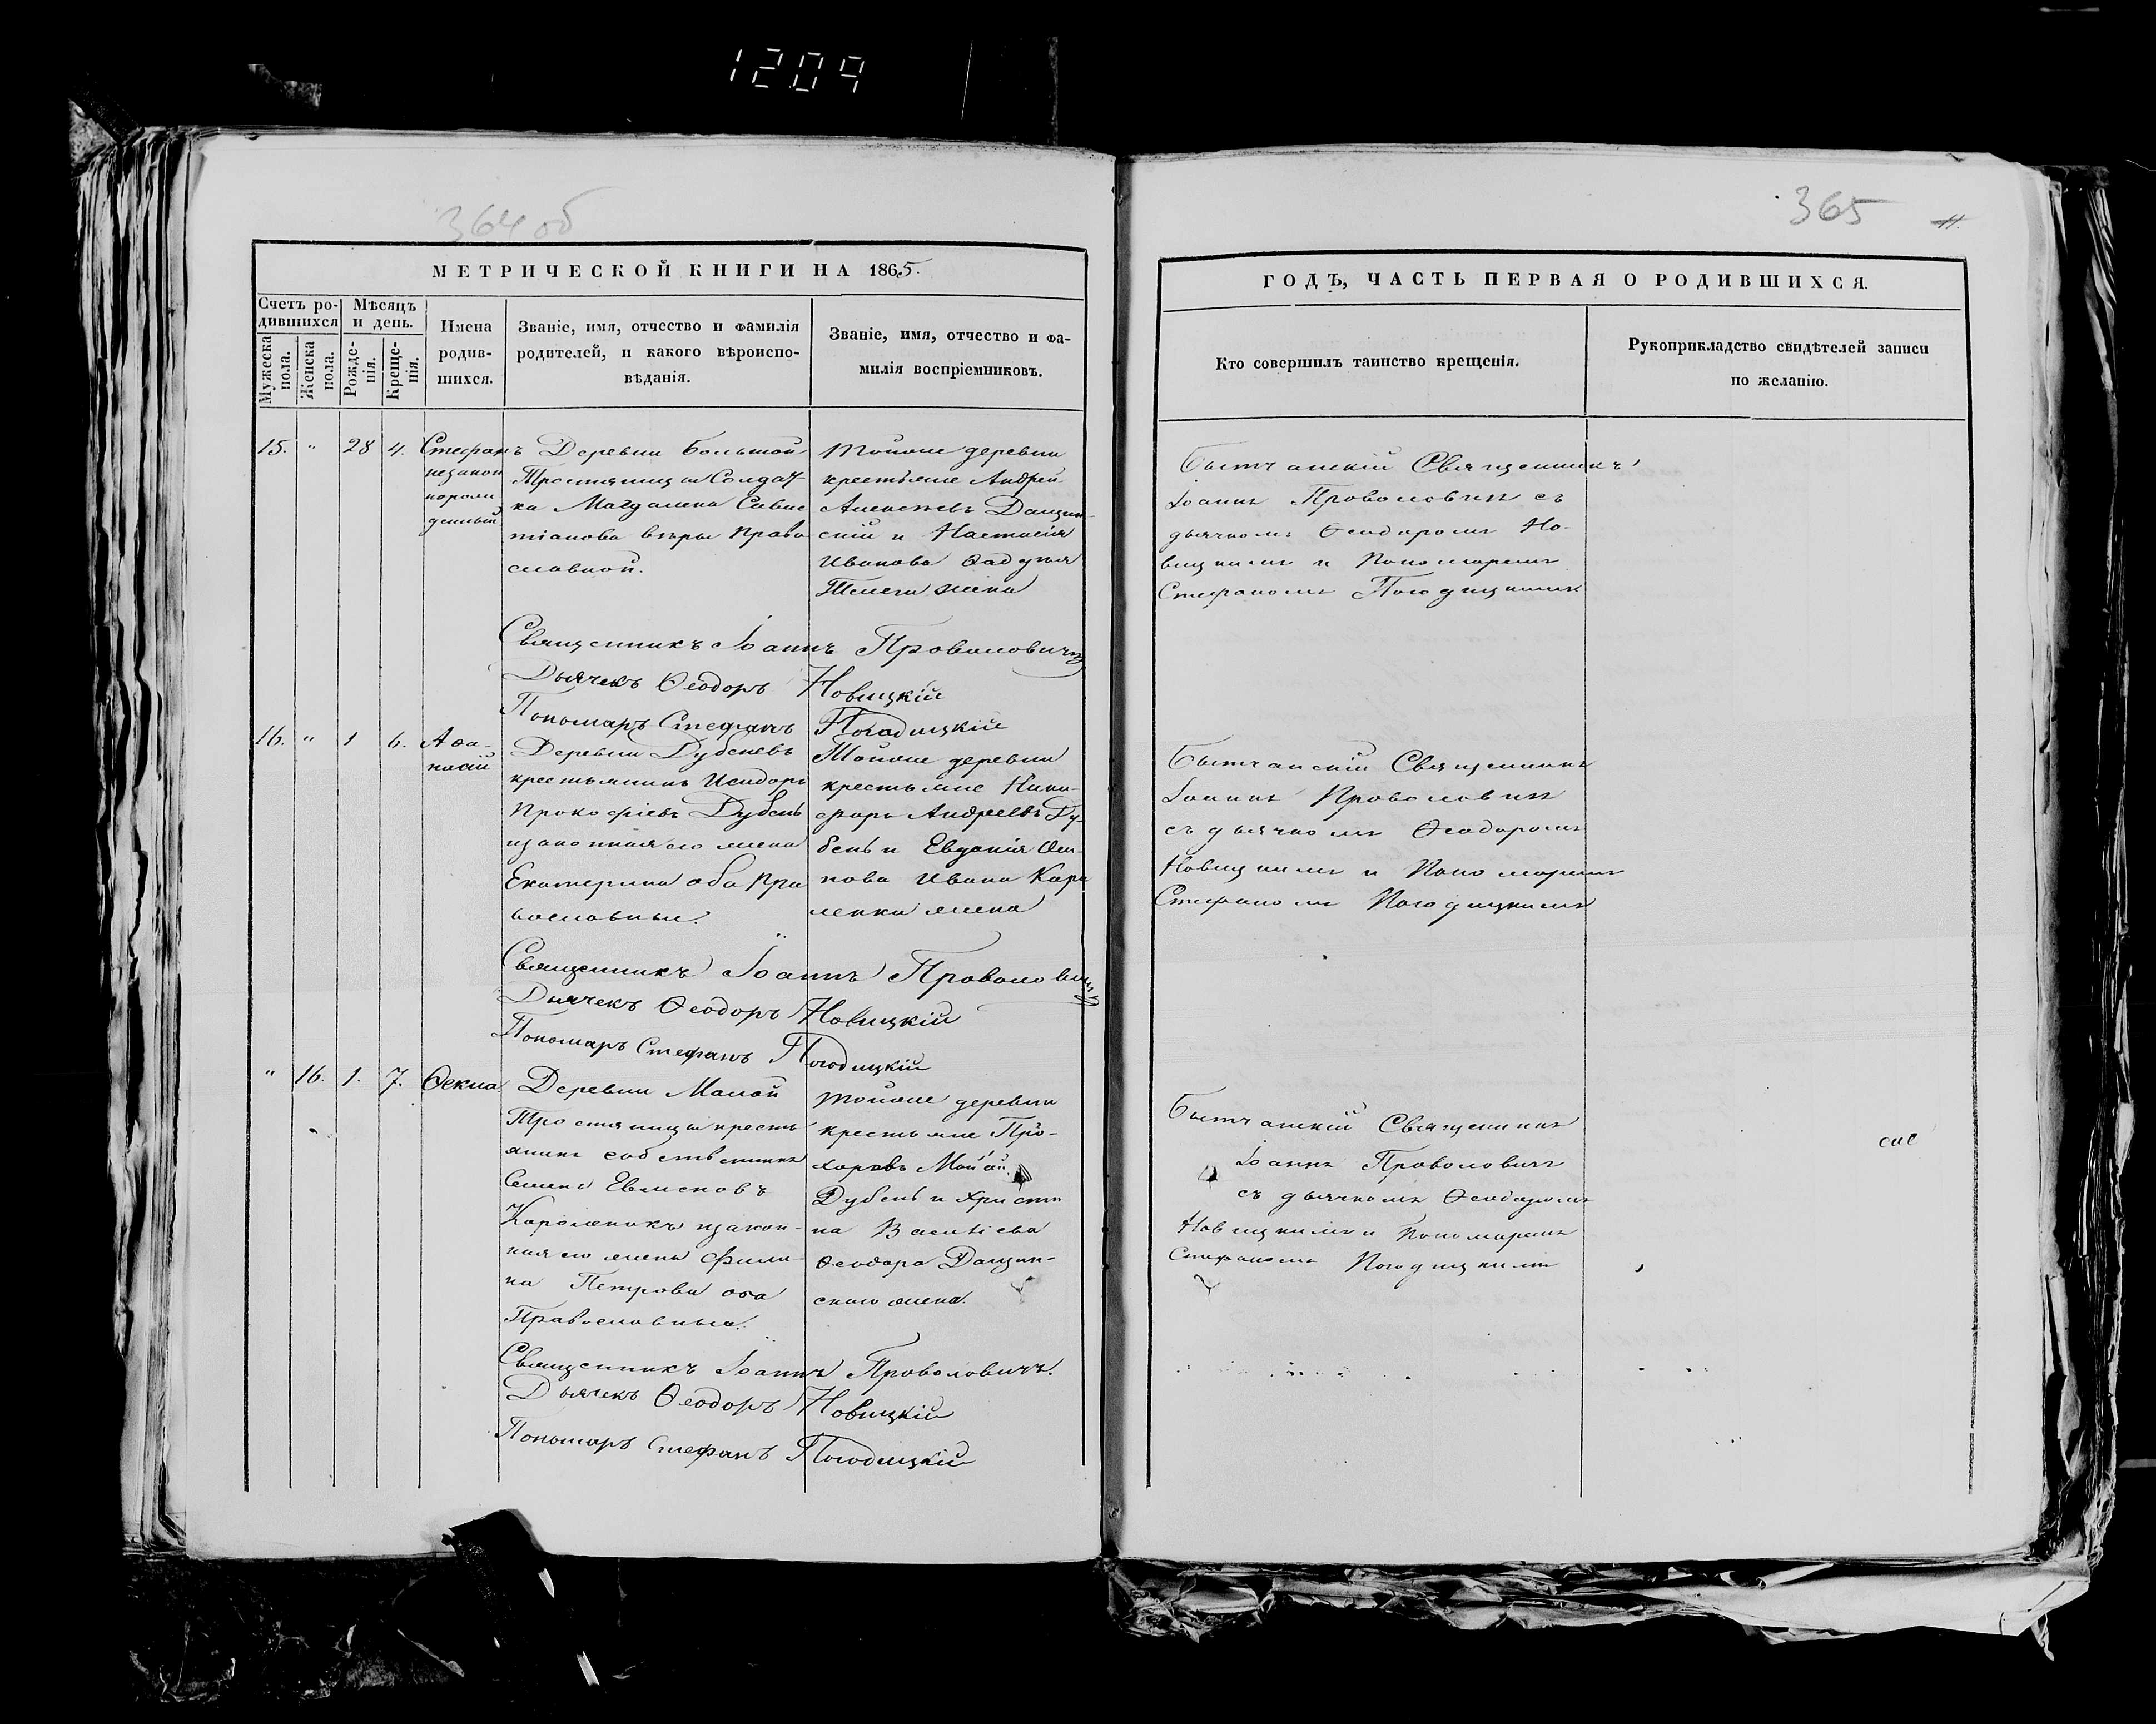 1209
364 об
МЕТРИЧЕСКОЙ КНИГИ НА 1865.
Счетъ ро-
дившихся
Мѣсяцъ
и день.
Мужеска
пола.
Женска
пола.
Рожде-
нія.
Креще-
нія.
Имена
родив-
шихся.
Званіе, имя, отчество и фамилія
родителей, и какого вѣроиспо-
вѣданія.
Званіе, имя, отчество и фа-
милія воспріемниковъ.
15. " 28 4. Стефанъ
незакон
норож
денный
Деревни Большой
Тростяницы Солдат
ка Магдалена Савис
тіанова вѣры Право
славной.
Тойже деревни
крестьяне Андрей
Алексѣевъ Данцин-
скій и Настасія
Иванова Фаддѣя
жена
Священникъ Іоаннъ Проволовичъ
Дьячекъ Ѳеодоръ Новицкій
Пономаръ Стефанъ Погодицкій
16. " 1 6. Аѳа-
насій
Деревни Дубеневъ
крестьянинъ Исидоръ
Прокофіевъ Дубень
изаконная его жена
Екатерина оба Пра
вославные.
Тойже деревни
крестьяне Ники-
форъ Андреевъ Ду-
бень и Евдокія Оси-
пова Ивана Каро
ленки жена
Священникъ Іоаннъ Проволовичъ
Дьячекъ Ѳеодоръ Новицкій
Пономаръ Стефанъ Погодицкій
" 16. 1. 7. Ѳекла
Деревни Малой
Тростяницы кресть
янинъ собственникъ
Семенъ
Короленокъ изакон-
ная его жена
на Петрова оба
Православные.
тойже деревни
крестьяне Про-
хоровъ
Дубень и Христи
на Василіева
Ѳеодора Данцин-
скаго жена.
Священникъ Іоаннъ Проволовичъ.
Дьячекъ Ѳеодоръ Новицкій
Пономаръ Стефанъ Погодицкій
365
11.
ГОДЪ, ЧАСТЬ ПЕРВАЯ О РОДИВШИХСЯ.
Кто совершилъ таинство крещенія.
Рукоприкладство свидѣтелей записи
по желанію.
Бытчанскій Священникъ
Іоаннъ Проволовичъ съ
дьячкомъ Ѳеодоромъ Но-
вицкимъ и Пономаремъ
Стефаномъ Погодицкимъ
Бытчанскій Священникъ
Іоаннъ Проволовичъ
съ дьячкомъ Ѳеодоромъ
Новицкимъ и Пономаремъ
Стефаномъ Погодицкимъ
Бытчанскій Священникъ
Іоаннъ Проволовичъ
съ дьячкомъ Ѳеодоромъ
Новицкимъ и Пономаремъ
Стефаномъ Погодицкимъ